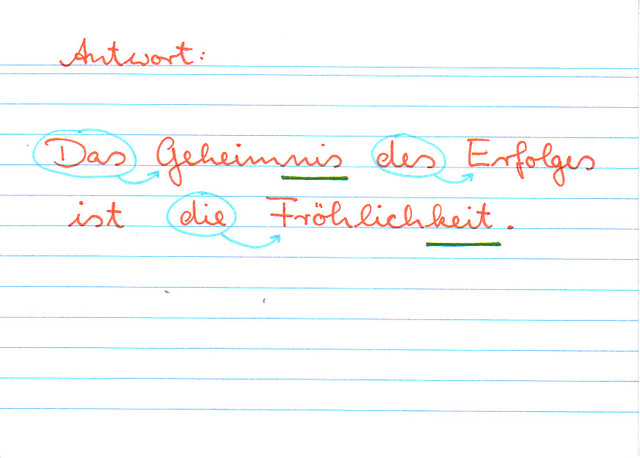 Antwort:
Das Geheimnis des Erfolges
ist die Fröhlichkeit.